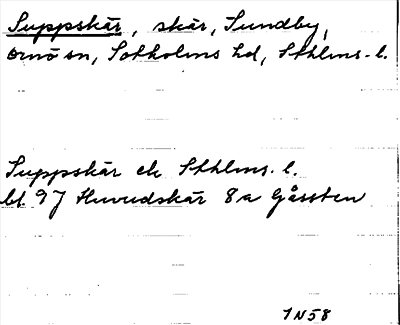 Suppskär, skär, Sundby,
Ornö sn, Sotholms hd, Sthlms l.
Suppskär ek Sthlms l.
bl. 97 Huvudskär 8a Gåssten
1N58